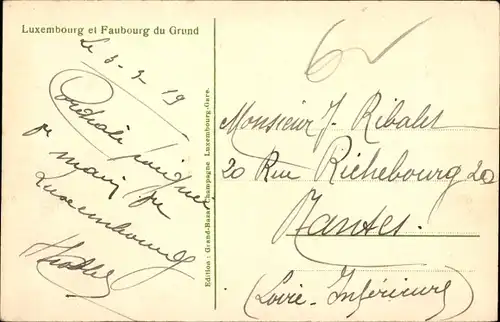 Luxembourg et Faubourg du Grund
Le 3-3-19
Cordiale poignée
de main de
Luxembourg
Edition: Grand-Bazar Champagne Luxembourg-Gare.
Monsieur J. Ribalet
20 Rue Richebourg 20
Nantes.
(Loire-Inférieure)